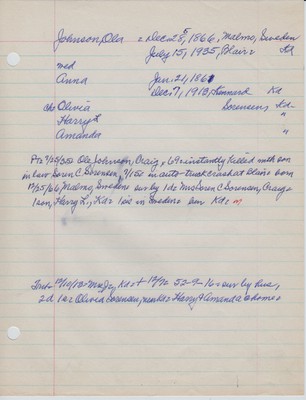 Johnson, Ola = Dec. 25, 1866, Malmo, Sweden
July 15, 1935, Blair = Ka
med
Anna Jan. 21, 1861
Dec. 7, 1913, Kennard Ka
cho Olivia Sorensens Ka-
Harry L "
Amanda "
Ole Johnson, Craig, 69 = instantly killed with son
in law Soren C. Sorensen, in auto-truck crash at Blair = born
12/25/66, Malmo, Sweden = sur by 1 da Mrs Soren C Sorensen, Craig =
1 son, Harry L., Ka = 1 sis in Sweden = bur Ka =
52-9-16 = sur by hus,
2 d 1 s = Olivia Sorensen, near Ka = Harry & Amanda @ home =